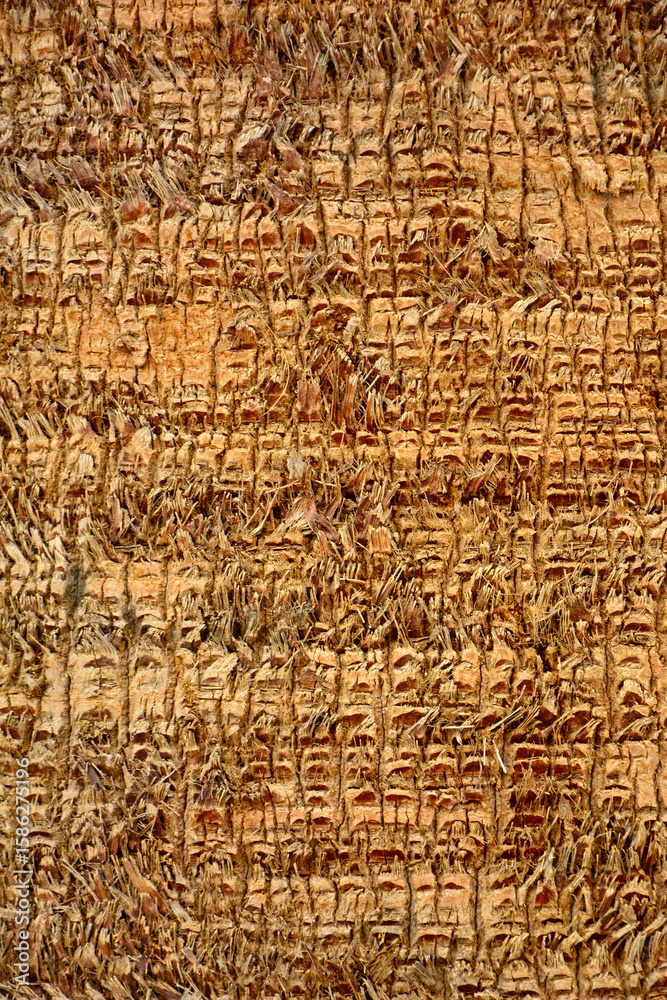 Adobe Stock | #1586275196